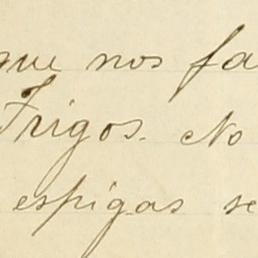 que nos fa
Trigos. No
espigas se